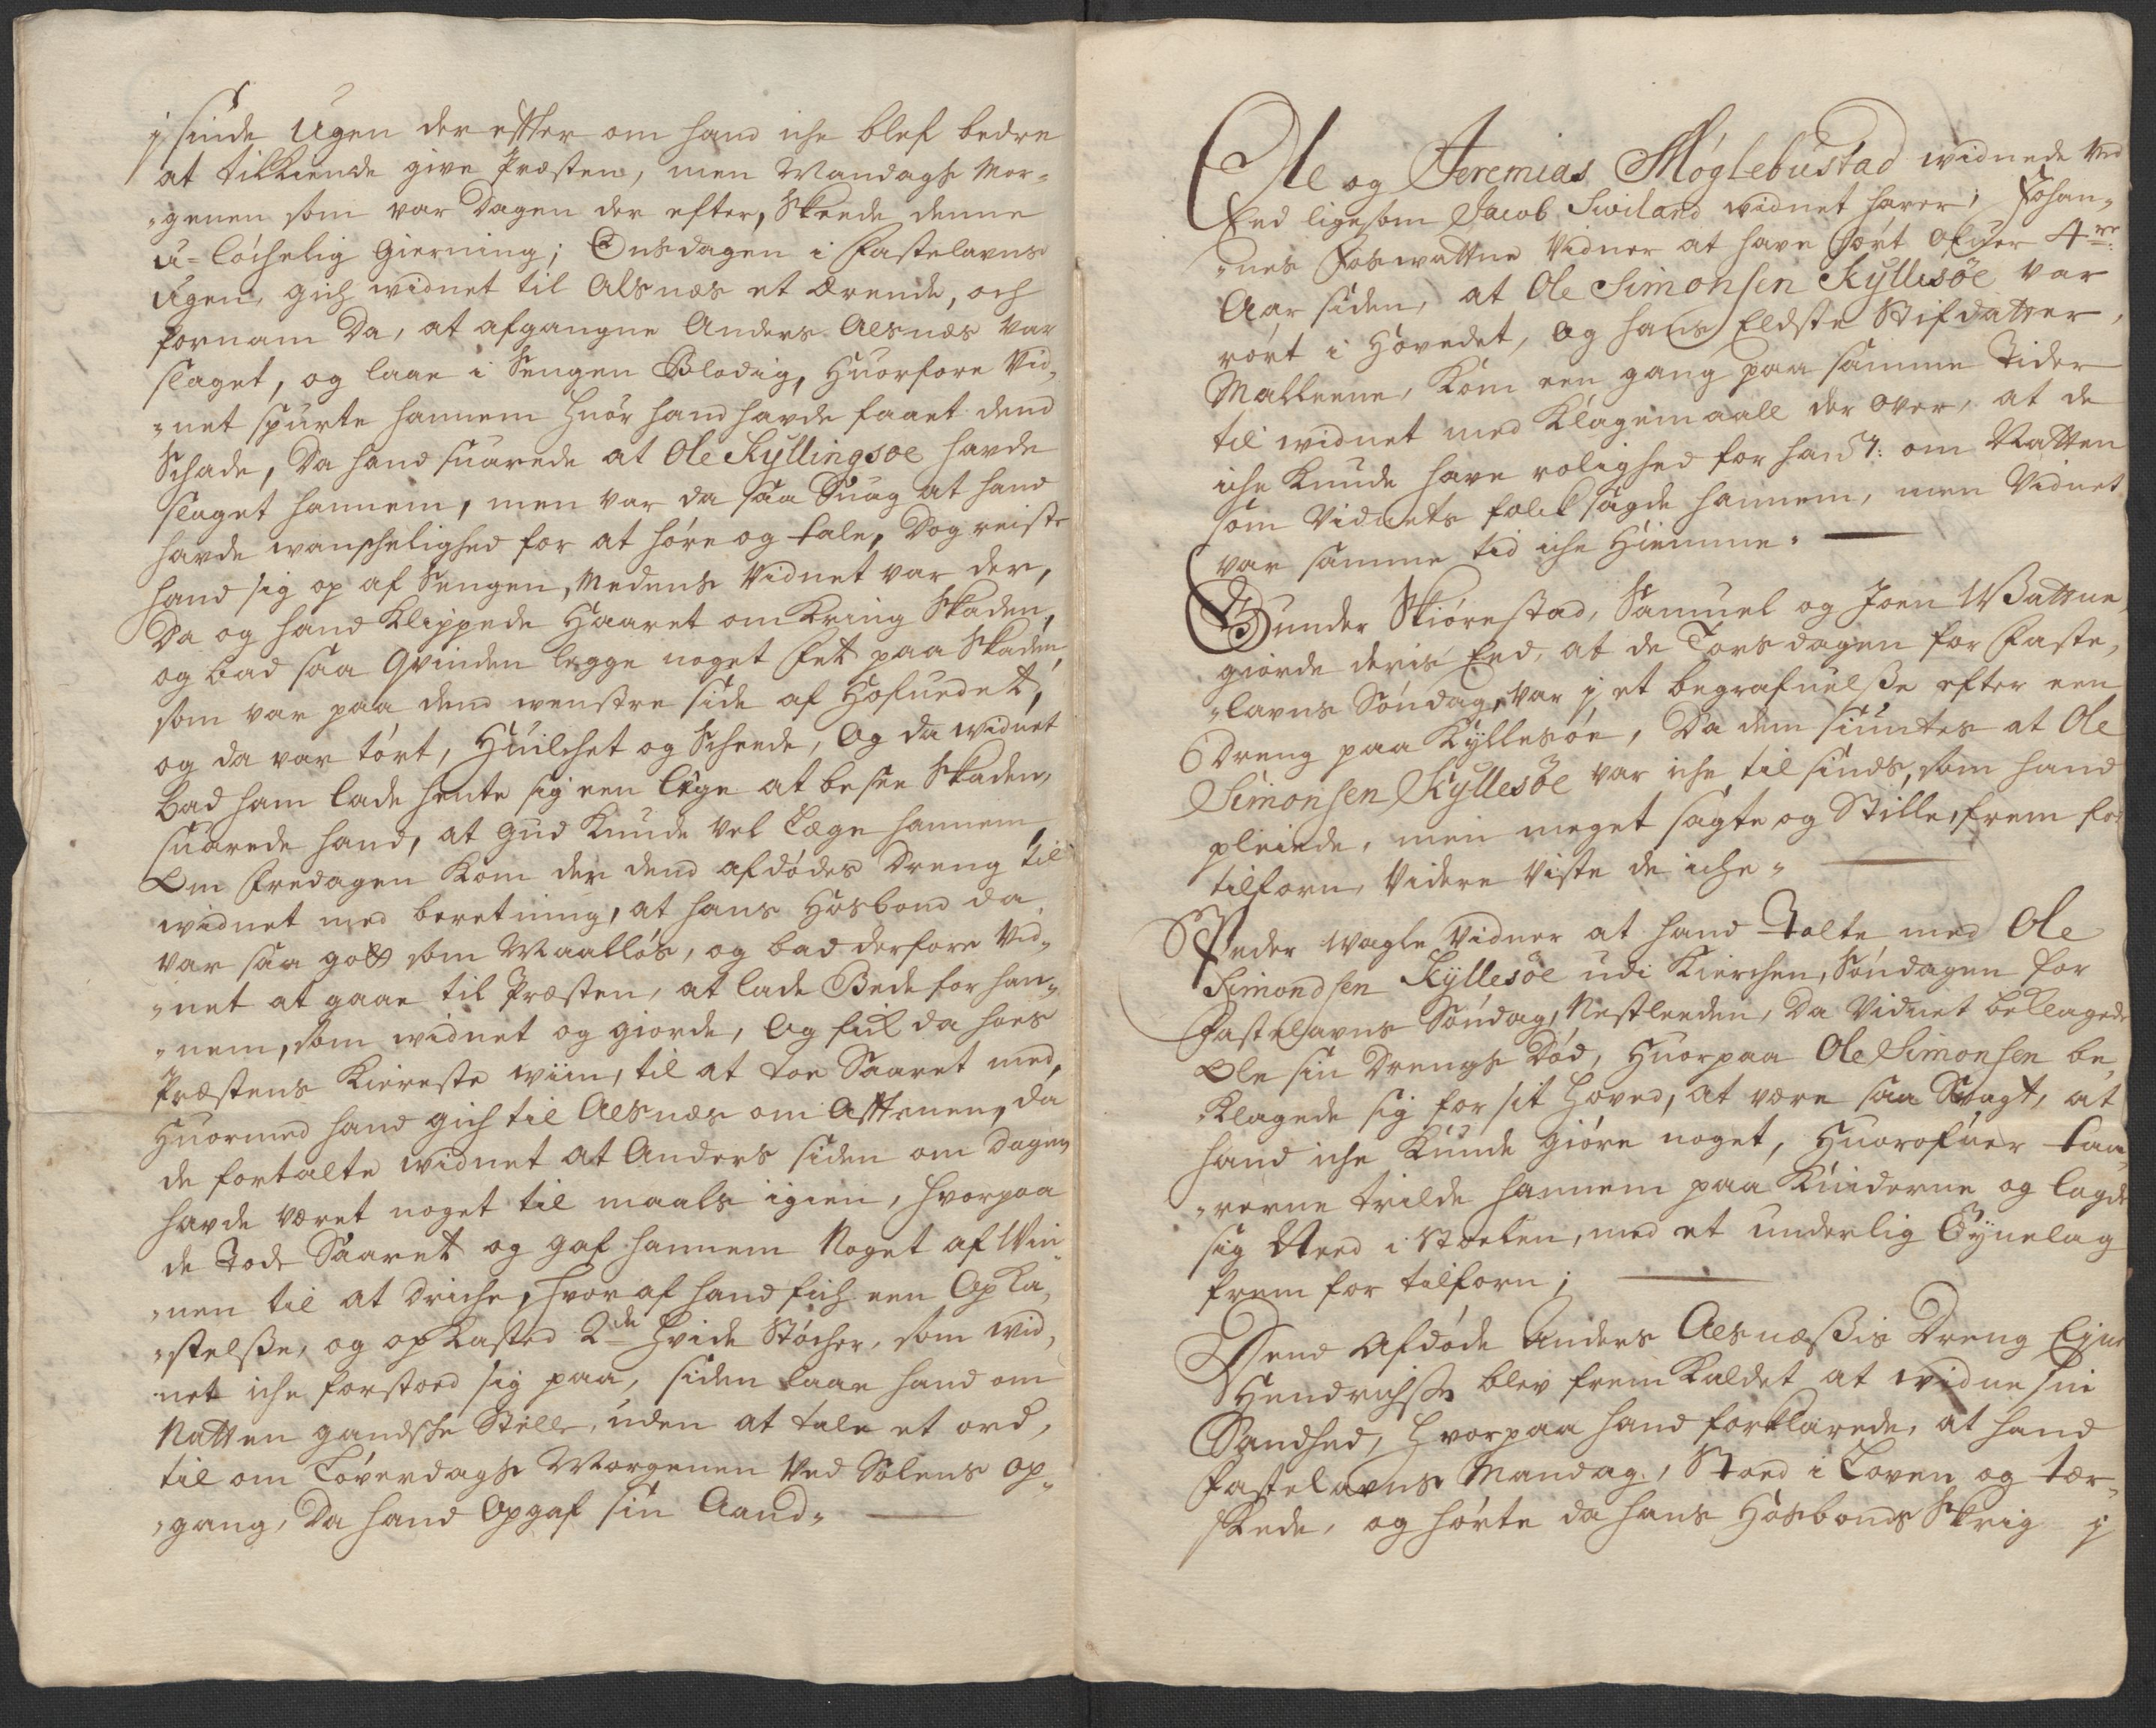 i sinde Ugen der efter om hand iche blef bedre
at tilkiende give Præsten, men Mandags Mor-
"genen som var Dagen der efter, Skeede denne
u-løchelig Gierning; Onsdagen i Fastelavns
Ugen, gich widnet til Alsnæs et Ærende, och
fornam Da, at afgangne Anders Alsnæs var
slaget, og laae i Sengen Blodig, Huorfore Vid,
"net spurte hannem huor hand havde faaet dend
Schade, Da hand suarede at Ole Kyllingsøe havde
slaget hannem, men var da saa Suag at hand
havde wanschelighed for at høre og tale, Dog reiste
hand sig op af Sengen, Medens Vidnet var der,
Da og hand Klippede Haaret omkring Skaden,
og bad saa Qvinden legge noget Fet paa Skaden,
som var paa dend wenstre side af Hofuedet,
og da var tørt, Huilchet og Scheede, Og da widnet
Bad ham lade hente sig een Læge at besee Skaden,
suarede hand, at Gud Kunde vel Læge hannem
Om Fredagen Kom der dend afdødes Dreng til
widnet med beretning, at hans Hosbond da
var saa got som Maalløs, og bad derfore Vid,
"net at gaae til Præsten, at lade Bede for han,
"nem, som widnet og giorde, Og fik da hoes
Præstens Kiereste wiin, til at toe Saaret med,
Huormed hand gich til Alsnæs om Afftenen, da
de fortalte widnet at Anders siden om dagen
havde været noget til maals igien, hvorpaa
de Tode Saaret og gaf hannem Noget af Wii-
"nen til at driche, hvor af hand fich een Opka,
"stelße, og opkasted 2de Hvide Støcher, som wid,
net iche forstoed sig paa, siden laae hand om
Natten gandsche Stille, uden at tale et ord,
til om Løverdags Morgenen Ved Solens op,
"gang, Da hand Opgaf sin Aand. —
Ole og Jeremias Møglebustad widnede Ved
Eed ligesom Jacob Swiland widnet haver; Johan,
"nes Foswattne Vidner at have hørt Ofuer 4re
Aar siden, at Ole Simonsen Kyllesøe var
rørt i Hovedet, og hans Eldste Stifdatter,
Malleene, Kom een gang paa samme Tider
til widnet med Klagemaall der over, at de
iche Kunde have rolighed for ham om Natten
som Vidnets folck sagde hannem, men Vidnet
var samme tid iche Hiemme. —
Gunder Skiørestad, Samuel og Joen Wattne,
giorde deris Eed, at de Torsdagen for Faste,
"lavns Søndag, var i et begrafuelße efter een
Dreng paa Kyllesøe, Da dem siuntes at Ole
Simonsen Kyllesøe var iche til sinds, som hand
pleiede, men meget sagte og Stille, frem for
tilforn, Videre Viste de iche. —
Peder Wagle Vidner at hand Talte med Ole
Simondsen Kyllesøe udi Kierchen, Søndagen for
Fastelavns Søndag, Nestleeden, Da Vidnet beklagede
Ole sin Drengs Død, Huorpaa Ole Simonsen be,
"klagede sig for sit Hoved, at være saa Svagt, at
hand iche Kunde giøre noget, Huorofuer taa,
"rerne trilde hannem paa Kinderne og lagde
sig Need i Stoelen, med et underlig Øynelag
frem for tilforn; —
Dend Afdøde Anders Alsnæßis Dreng
Hendrichs blev frem Kaldet at widne sin
Sandhed, Hvorpaa hand forklarede, at hand
Fastelavns Mandag, Stoed i Loven og tær-
skede, og hørte da hans Hosbonds Skrig i